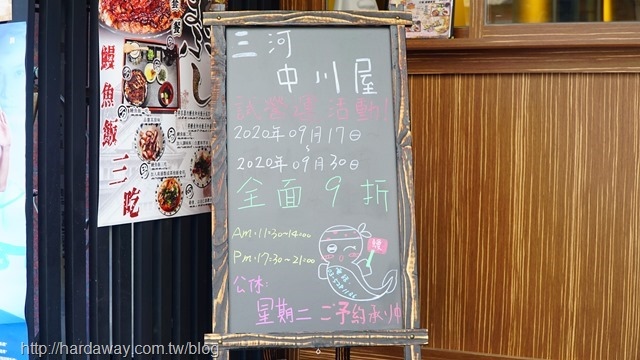 三河
中川屋
試營運活動!
2020年09月17日
~
2020年09月30日
全面9折
AM:11:30~14:00
PM:17:30~21:00
公休:
星期二 ご予約承り中
鰻魚飯三吃
http://hardaway.com.tw/blog